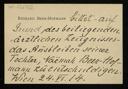 RICHARD BEER-HOFMANN bittet auf
Grund des beiliegenden
ärztlichen Zeugnisses
das Ausbleiben seiner
Tochter, Naëmah Beer-Hof-
mann zu entschuldigen.
Wien 24. VI. 14.